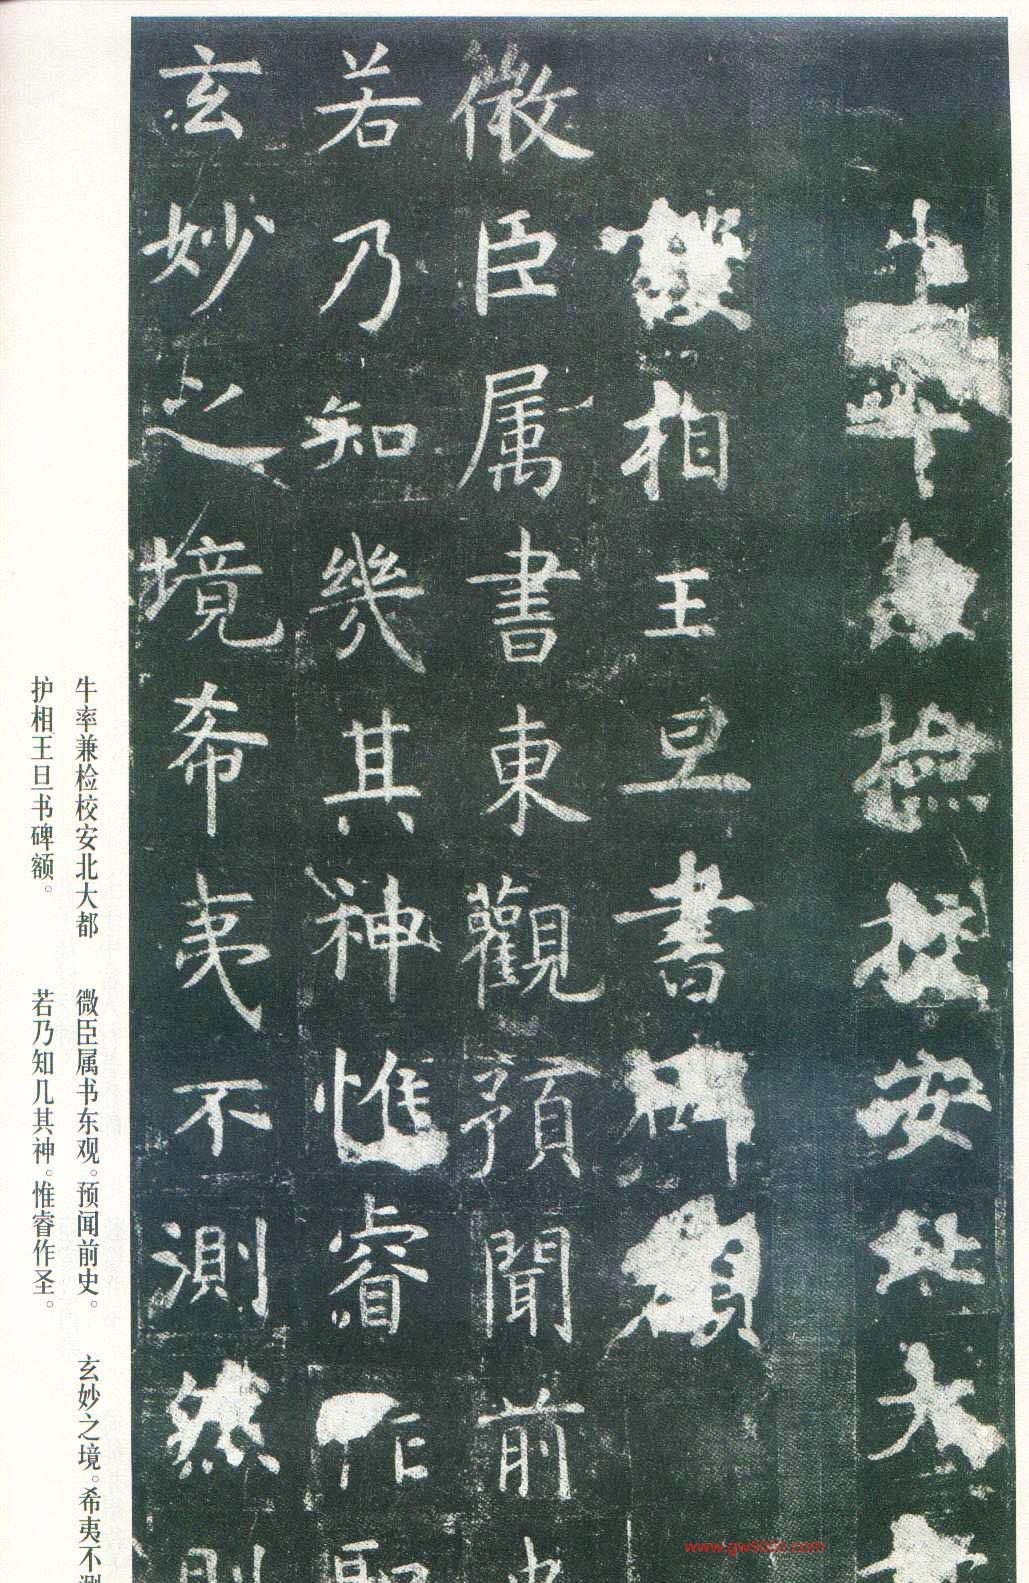 安北大
護相王旦書碑額
微臣属書東觀預聞前
若乃知幾其神惟睿作
玄妙之境希夷不測然
牛率兼检校安北大都
护相王旦书碑额。
微臣属书东观。预闻前史。
若乃知几其神。惟睿作圣。
玄妙之境。希夷不测